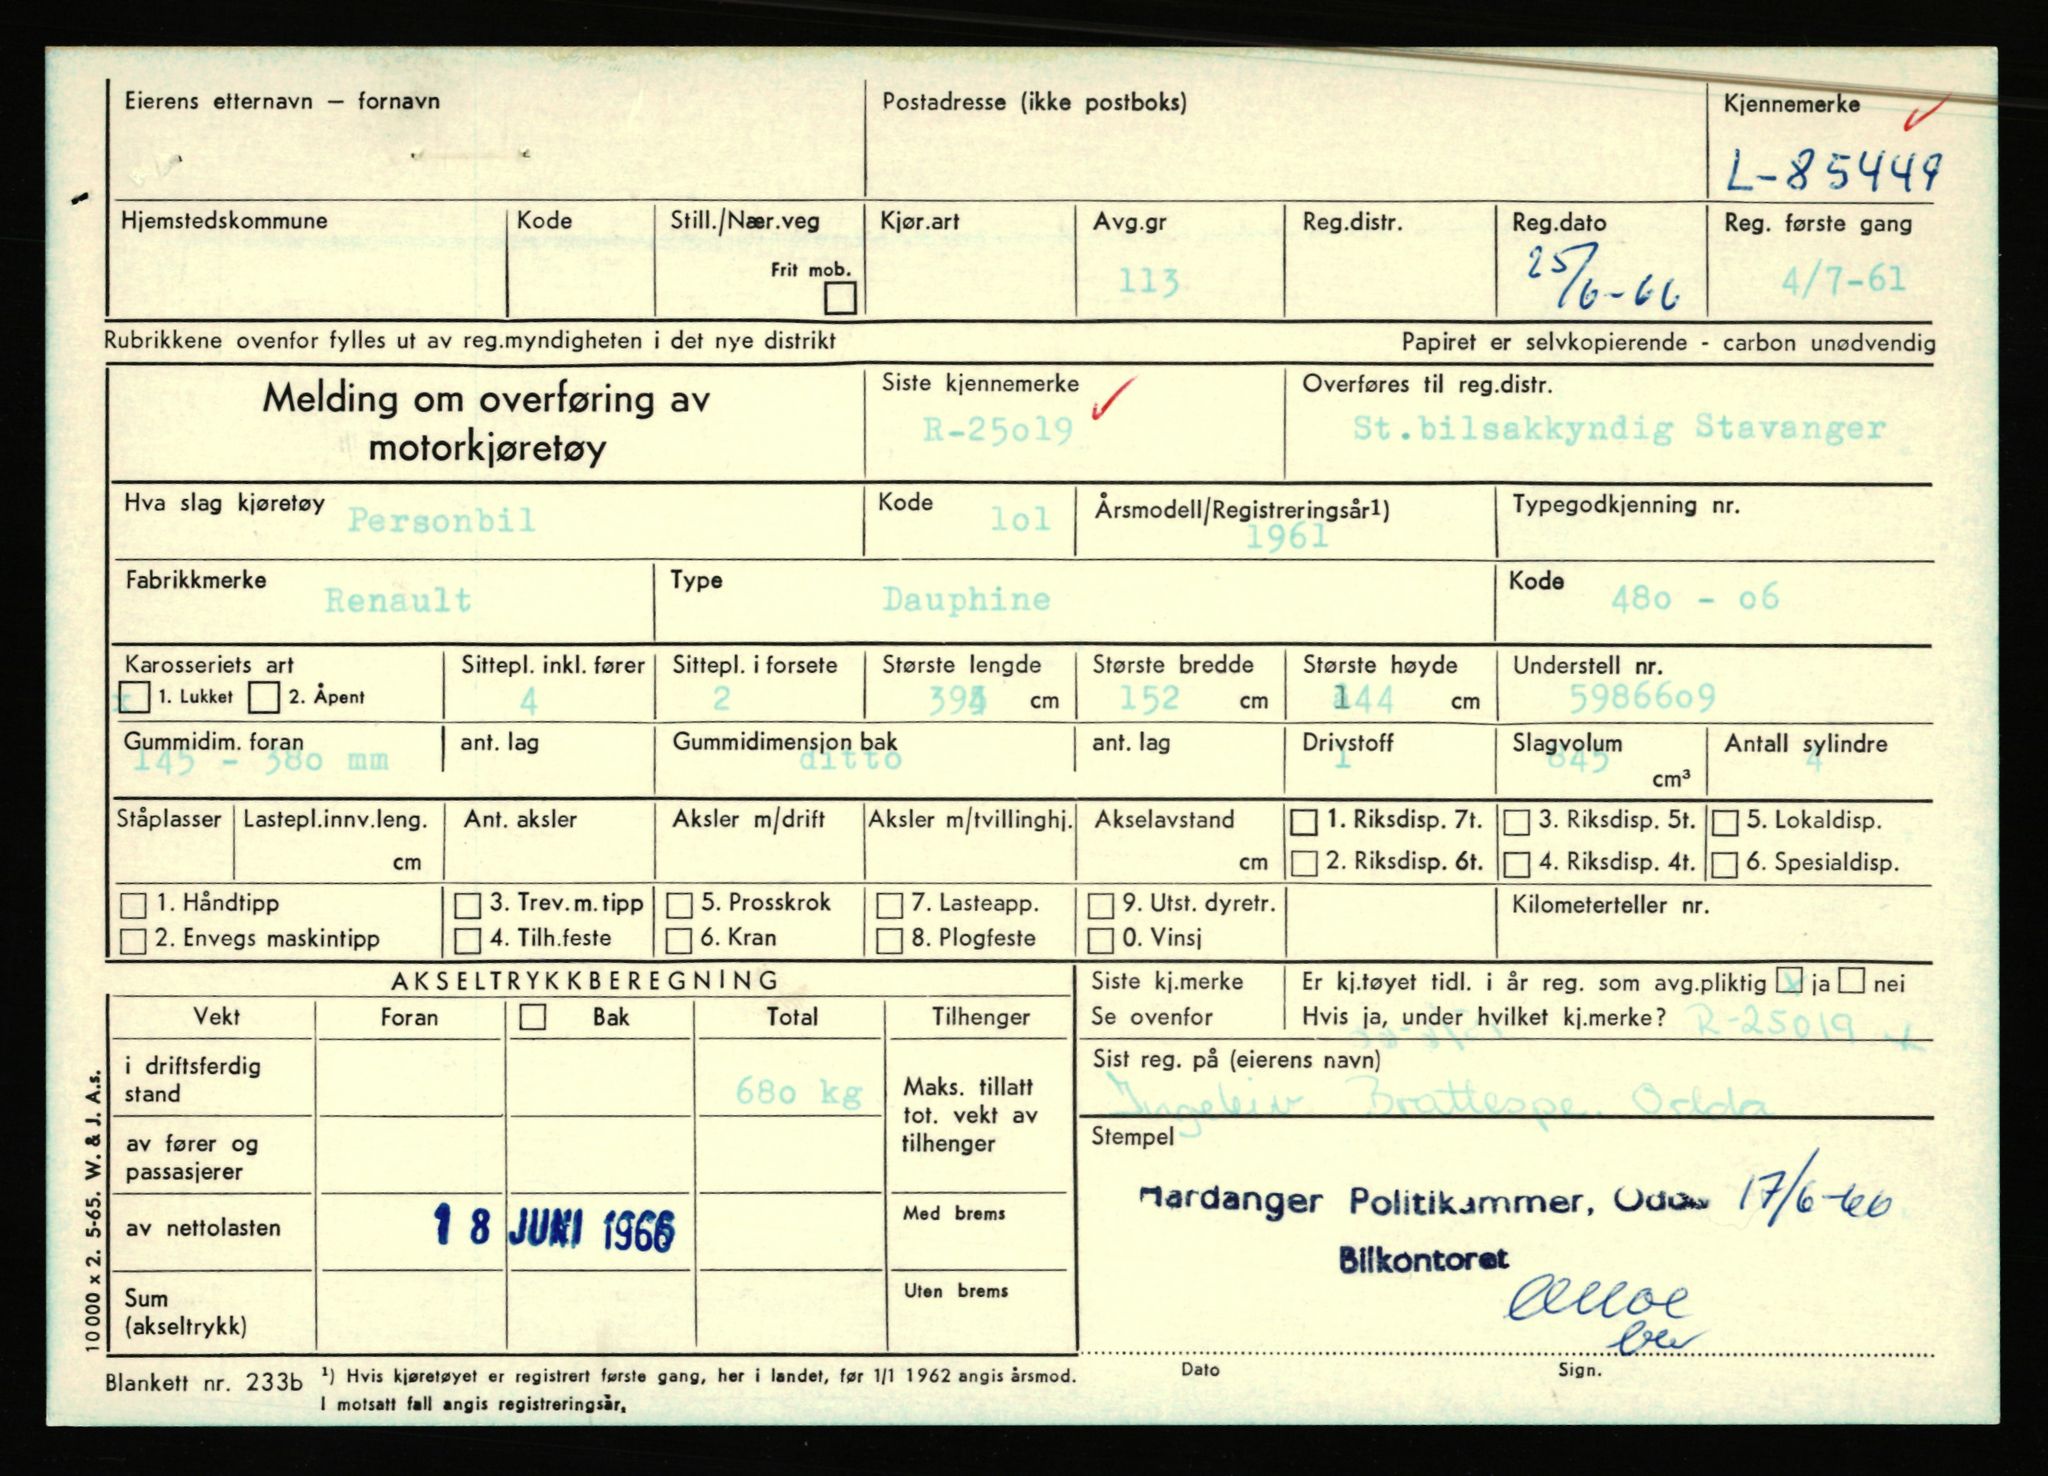 Eierens etternavn – fornavn
Postadresse (ikke postboks)
Kjennemerke
L-85449
Hjemstedskommune
Kode
Still./Nær.veg
Frit mob.
Kjør.art
Avg.gr
113
Reg.distr.
Reg.dato
25/6-66
Reg. første gang
4/7-61
Rubrikkene ovenfor fylles ut av reg.myndigheten i det nye distrikt
Papiret er selvkopierende - carbon unødvendig
Melding om overføring av
motorkjøretøy
Siste kjennemerke
R-25o19
Overføres til reg.distr.
St.bilsakkyndig Stavanger
Hva slag kjøretøy
Personbil
Kode
lol
Årsmodell/Registreringsår1)
1961
Typegodkjenning nr.
Fabrikkmerke
Renault
Type
Dauphine
Kode
48o - o6
Karosseriets art
x 1. Lukket 2. Åpent
Sittepl. inkl. fører
4
Sittepl. i forsete
2
Største lengde
cm
Største bredde
152 cm
Største høyde
144 cm
Understell nr.
59866o9
Gummidim. foran
145 - 38o mm
ant. lag
Gummidimensjon bak
ditto
ant. lag
Drivstoff
1
Slagvolum
845
cm³
Antall sylindre
4
Ståplasser
Lastepl.innv.leng.
cm
Ant. aksler
Aksler m/drift
Aksler m/tvillinghj.
Akselavstand
cm
1. Riksdisp. 7t.
2. Riksdisp. 6t.
3. Riksdisp. 5t.
4. Riksdisp. 4t.
5. Lokaldisp.
6. Spesialdisp.
1. Håndtipp
2. Envegs maskintipp
3. Trev.m.tipp
4. Tilh.feste
5. Prosskrok
6. Kran
7. Lasteapp.
8. Plogfeste
9. Utst. dyretr.
0. Vinsj
Kilometerteller nr.
AKSELTRYKKBEREGNING
Vekt
Foran
Bak
Total
Tilhenger
i driftsferdig
stand
680 kg
Maks. tillatt
tot. vekt av
tilhenger
av fører og
passasjerer
av nettolasten
18 JUNI 1966
Med brems
Sum
(akseltrykk)
Uten brems
Siste kj.merke
Se ovenfor
Er kj.tøyet tidl. i år reg. som avg.pliktig x ja nei
Hvis ja, under hvilket kj.merke? R-25019
Sist reg. på (eierens navn)
Brattespe, Odda
Stempel
Hardanger Politikammer, Odda 17/6-66
Bilkontoret
Dato
Sign.
10 000 x 2. 5-65. W. & J. A.s.
Blankett nr. 233b
¹) Hvis kjøretøyet er registrert første gang, her i landet, før 1/1 1962 angis årsmod.
I motsatt fall angis registreringsår.